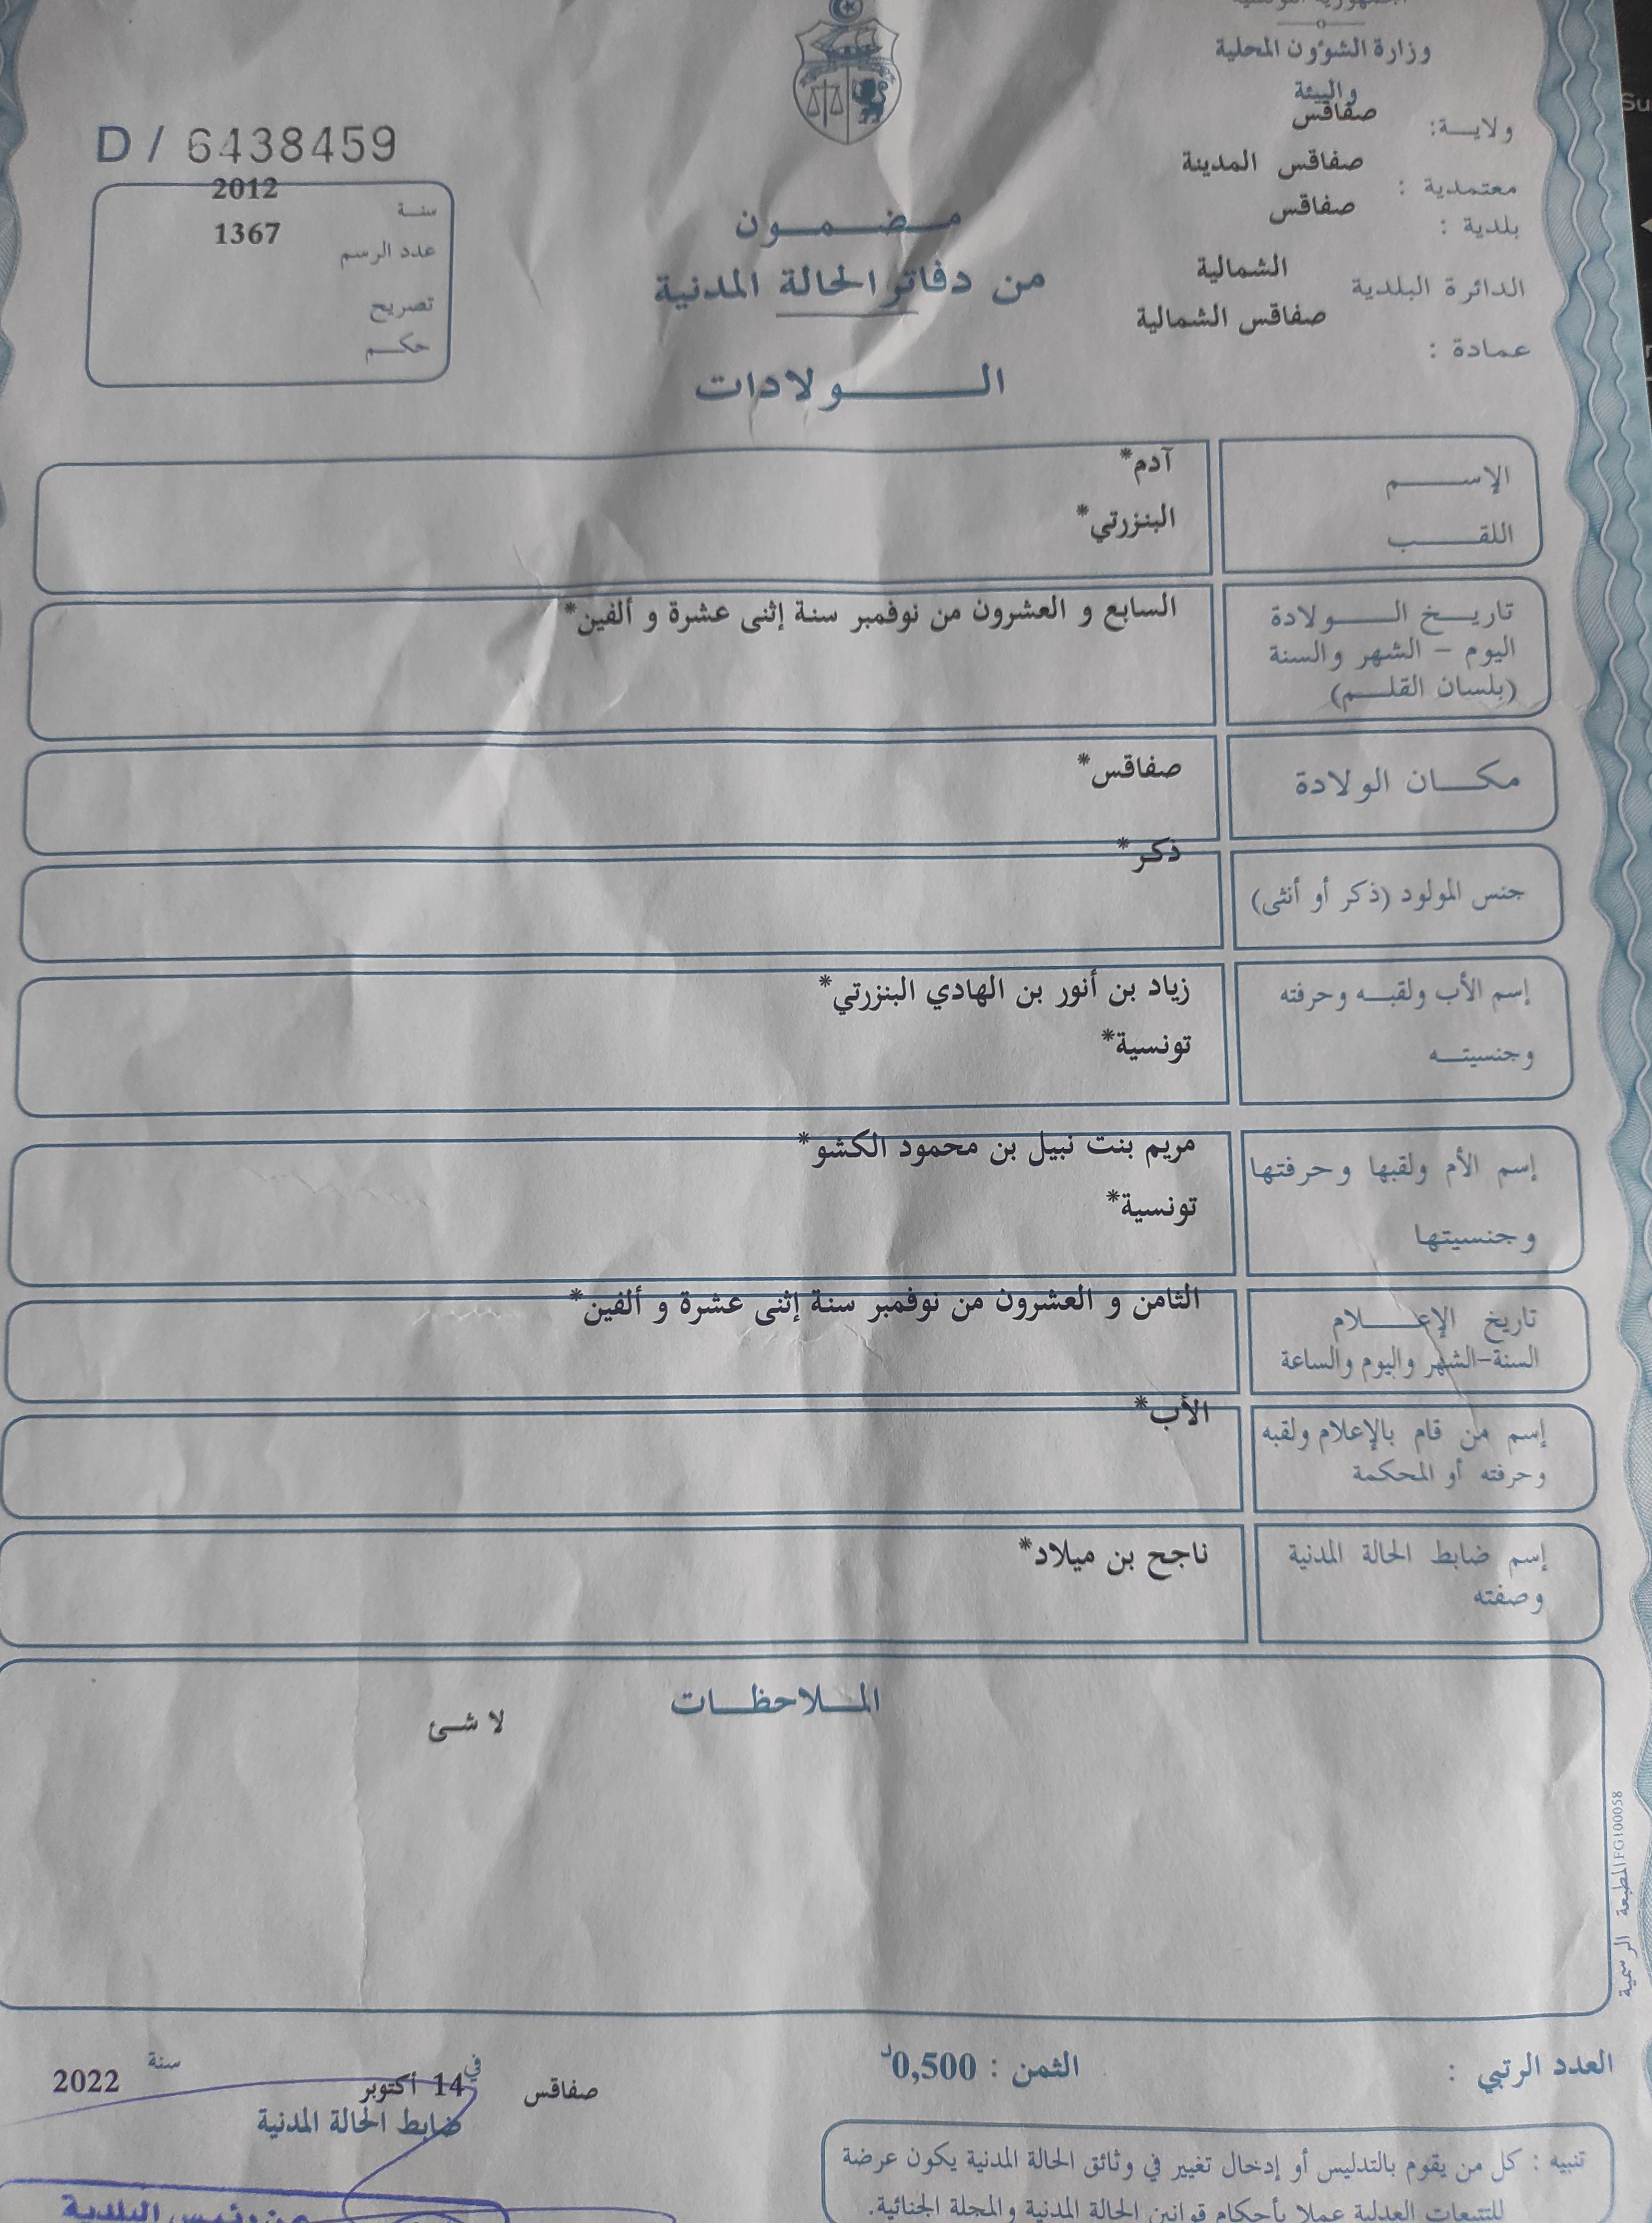 الجمهورية التونسية
وزارة الشؤون المحلية
والبيئة
ولاية: صفاقس
معتمدية : صفاقس المدينة
بلدية : صفاقس
الدائرة البلدية الشمالية
عمادة : صفاقس الشمالية
D / 6438459
سنة 2012
عدد الرسم 1367
تصريح
حكم
مضمون
من دفاتر الحالة المدنية
الولادات
الإسم آدم*
اللقب البنزرتي*
تاريخ الولادة السابع و العشرون من نوفمبر سنة إثنى عشرة و ألفين*
اليوم – الشهر والسنة
(بلسان القلم)
مكان الولادة صفاقس*
جنس المولود (ذكر أو أنثى) ذكر*
إسم الأب ولقبه وحرفته زياد بن أنور بن الهادي البنزرتي*
وجنسيته تونسية*
إسم الأم ولقبها وحرفتها مريم بنت نبيل بن محمود الكشو*
وجنسيتها تونسية*
تاريخ الإعلام الثامن و العشرون من نوفمبر سنة إثنى عشرة و ألفين*
السنة-الشهر واليوم والساعة
إسم من قام بالإعلام ولقبه الأب*
وحرفته أو المحكمة
إسم ضابط الحالة المدنية ناجح بن ميلاد*
وصفته
الملاحظات
لا شئ
المطبعة الرسمية FG100058
العدد الرتبي :
الثمن : 0,500د
صفاقس في 14 أكتوبر سنة 2022
ضابط الحالة المدنية
تنبيه : كل من يقوم بالتدليس أو إدخال تغيير في وثائق الحالة المدنية يكون عرضة
للتتبعات العدلية عملا بأحكام قوانين الحالة المدنية والمجلة الجنائية.
عن رئيس البلدية
Su